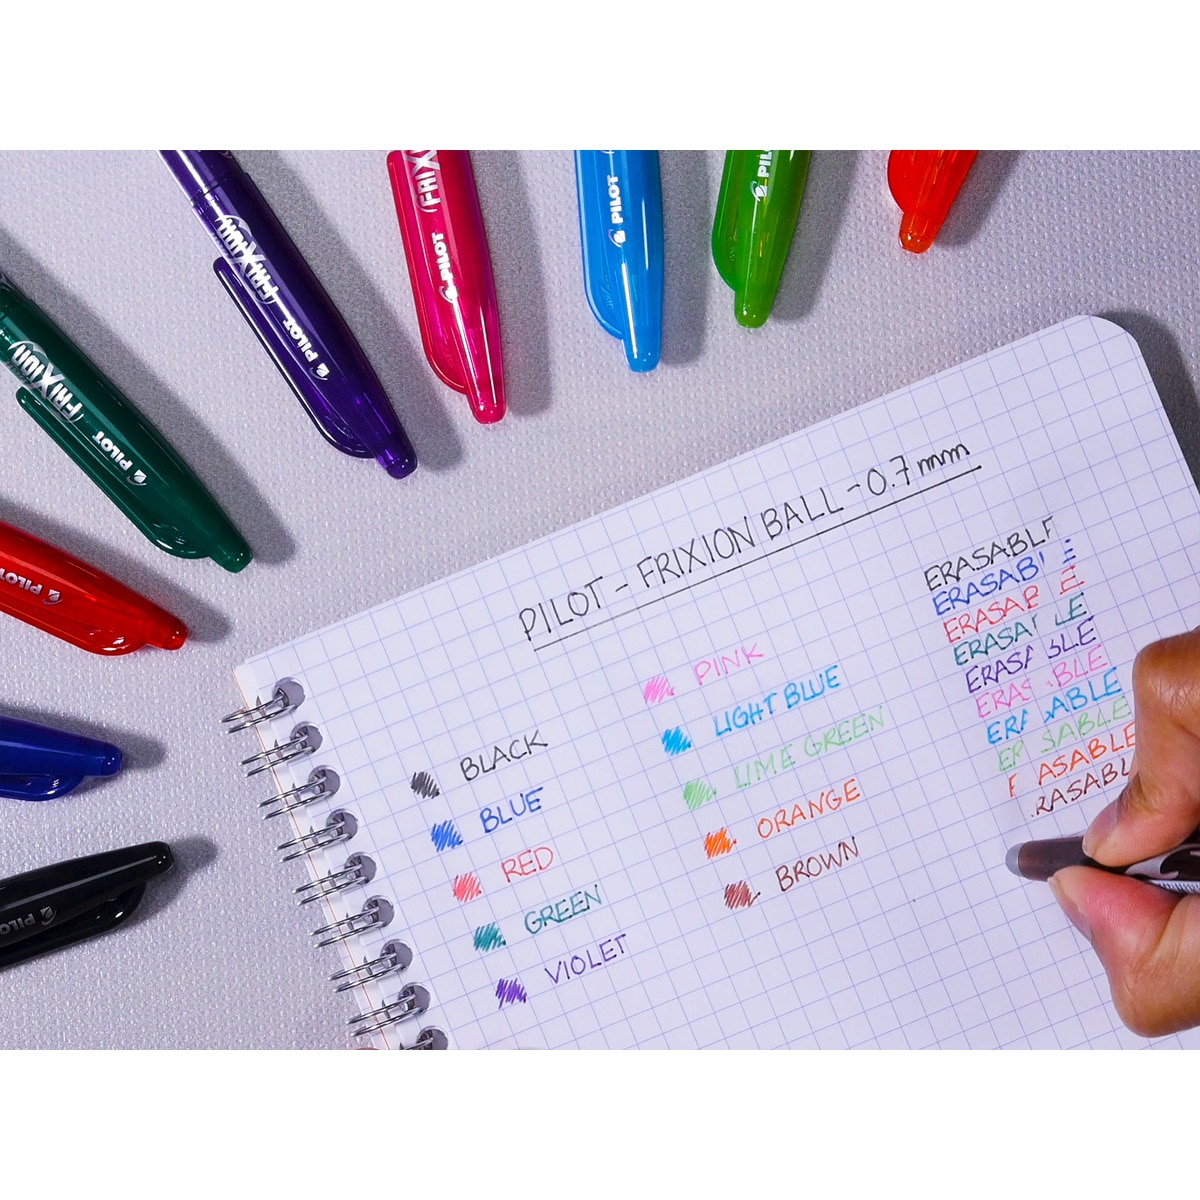 FRIXION
PILOT
FRIXION
PILOT
PILOT
PIL
FRIXION
PILOT
PILOT
PILOT
PILOT - FRIXION BALL - 0.7 mm
BLACK
BLUE
RED
GREEN
VIOLET
PINK
LIGHT BLUE
LIME GREEN
ORANGE
BROWN
ERASABLE
ERASAB E
ERASAB E
ERASA LE
ERASA BLE
ERAS BLE
ERA ABLE
ER SABLE
E ASABLE
RASABL